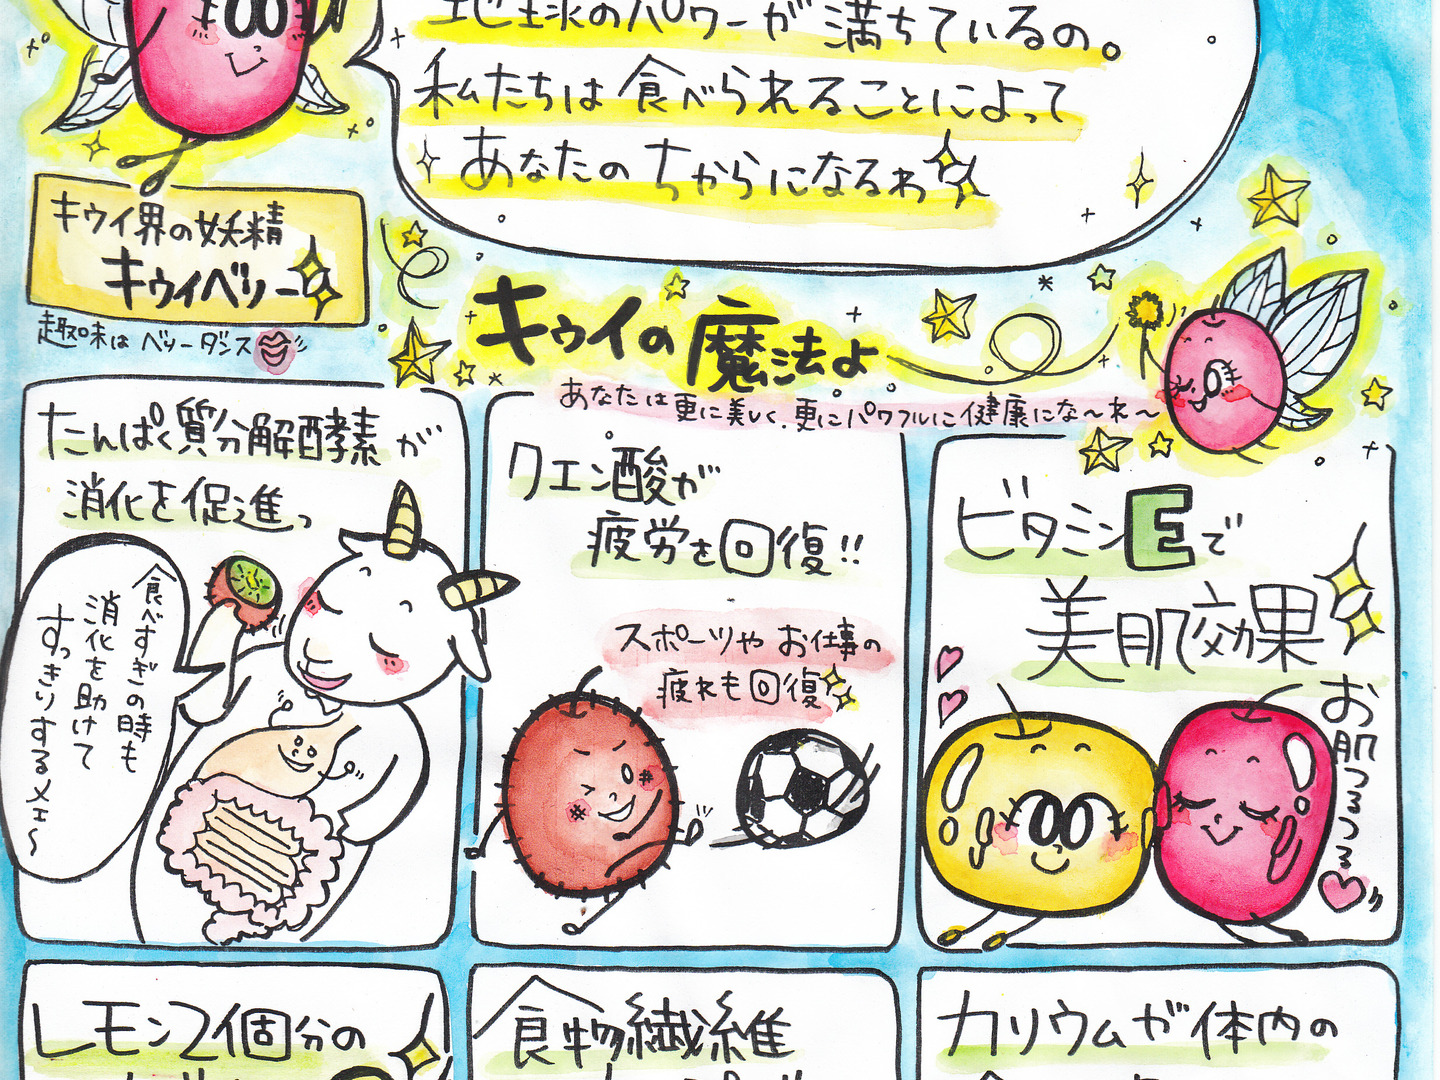 地球のパワーが満ちているの。
私たちは食べられることによって
あなたのちからになるわ
キウイ界の妖精
キウイベリー
趣味はベリーダンス
キウイの魔法よ
あなたは更に美しく、更にパワフルに健康にな〜れ〜
たんぱく質分解酵素が
消化を促進っ
食べすぎの時も
消化を助けて
すっきりするメェ〜
クエン酸が
疲労を回復!!
スポーツやお仕事の
疲れも回復
ビタミンEで
美肌効果
お肌つるつる
レモン2個分の
食物繊維
カリウムが体内の